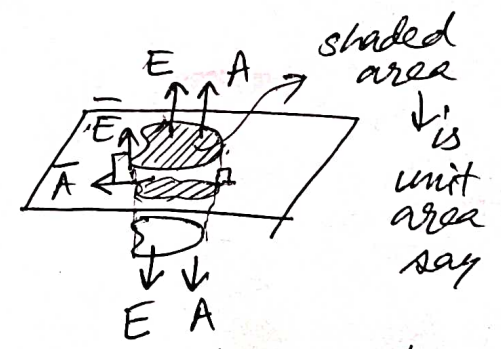 shaded
area
is
unit
area
say
E A
E̅
A̅
E A